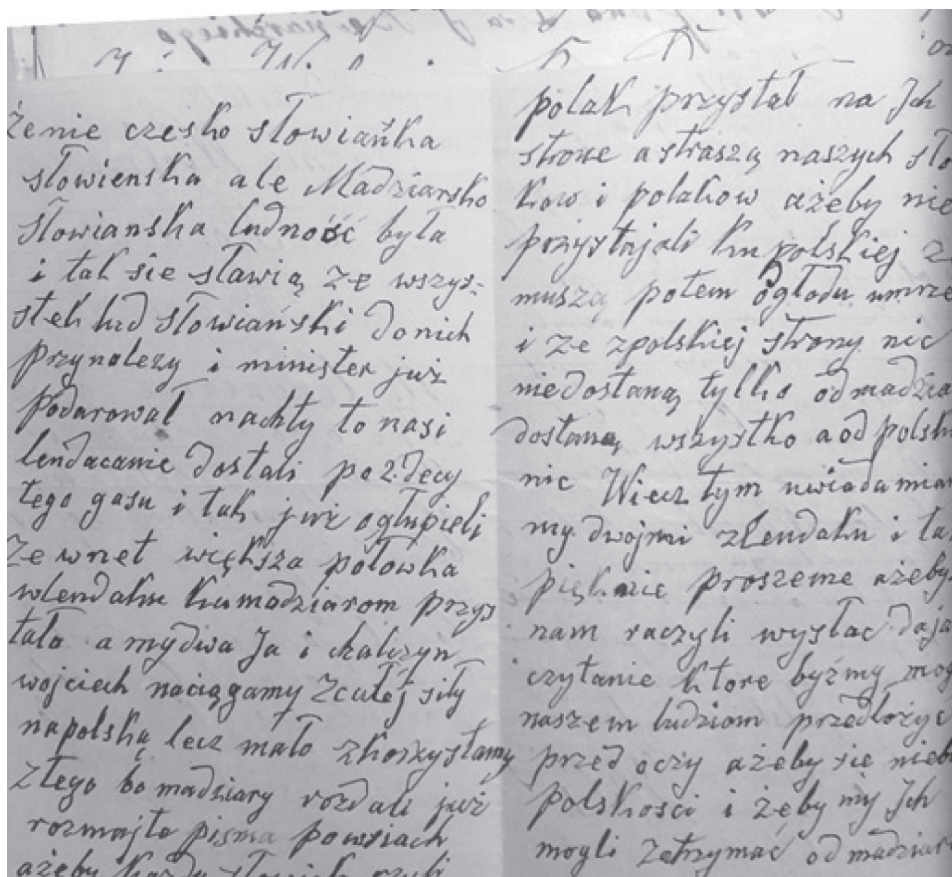 żenie czesko słowiańska
słowienska ale Madziarsko
słowianska ludność była
i tak sie sławią ze wszys-
stek lud słowiański do nich
przynalezy i minister już
podarował nachły to nasi
lendacanie dostali po 2. decy
tego gasu i tak już ogłupieli
ze wnet większa połowka
wlendaku kumadziarom przys
tała a mydwa Ja i
wojciech naciągamy zcałej siły
napolską lecz mało zkorzystamy
ztego bo madziary rozdali już
rozmajte pisma powsiach
ażeby
polak przystał na Jch
strone a straszą naszych sło
kow i polakow ażeby nie
przystajali kupolskiej
muszą potem ogłodu umrze
i ze zpolskiej strony nic
niedostaną tylko odmadzia
dostaną wszystko a od polski
nic Wiecz tym uwiadamia
my dwojmi zlendaku i ta
pięknie proszeme ażeby
nam raczyli wysłac
czytanie ktore byźmy mog
naszem ludziom przedłożyć
przed oczy ażeby sie nieb
polskości i żęby my Jch
mogli zetrzymać od madziar